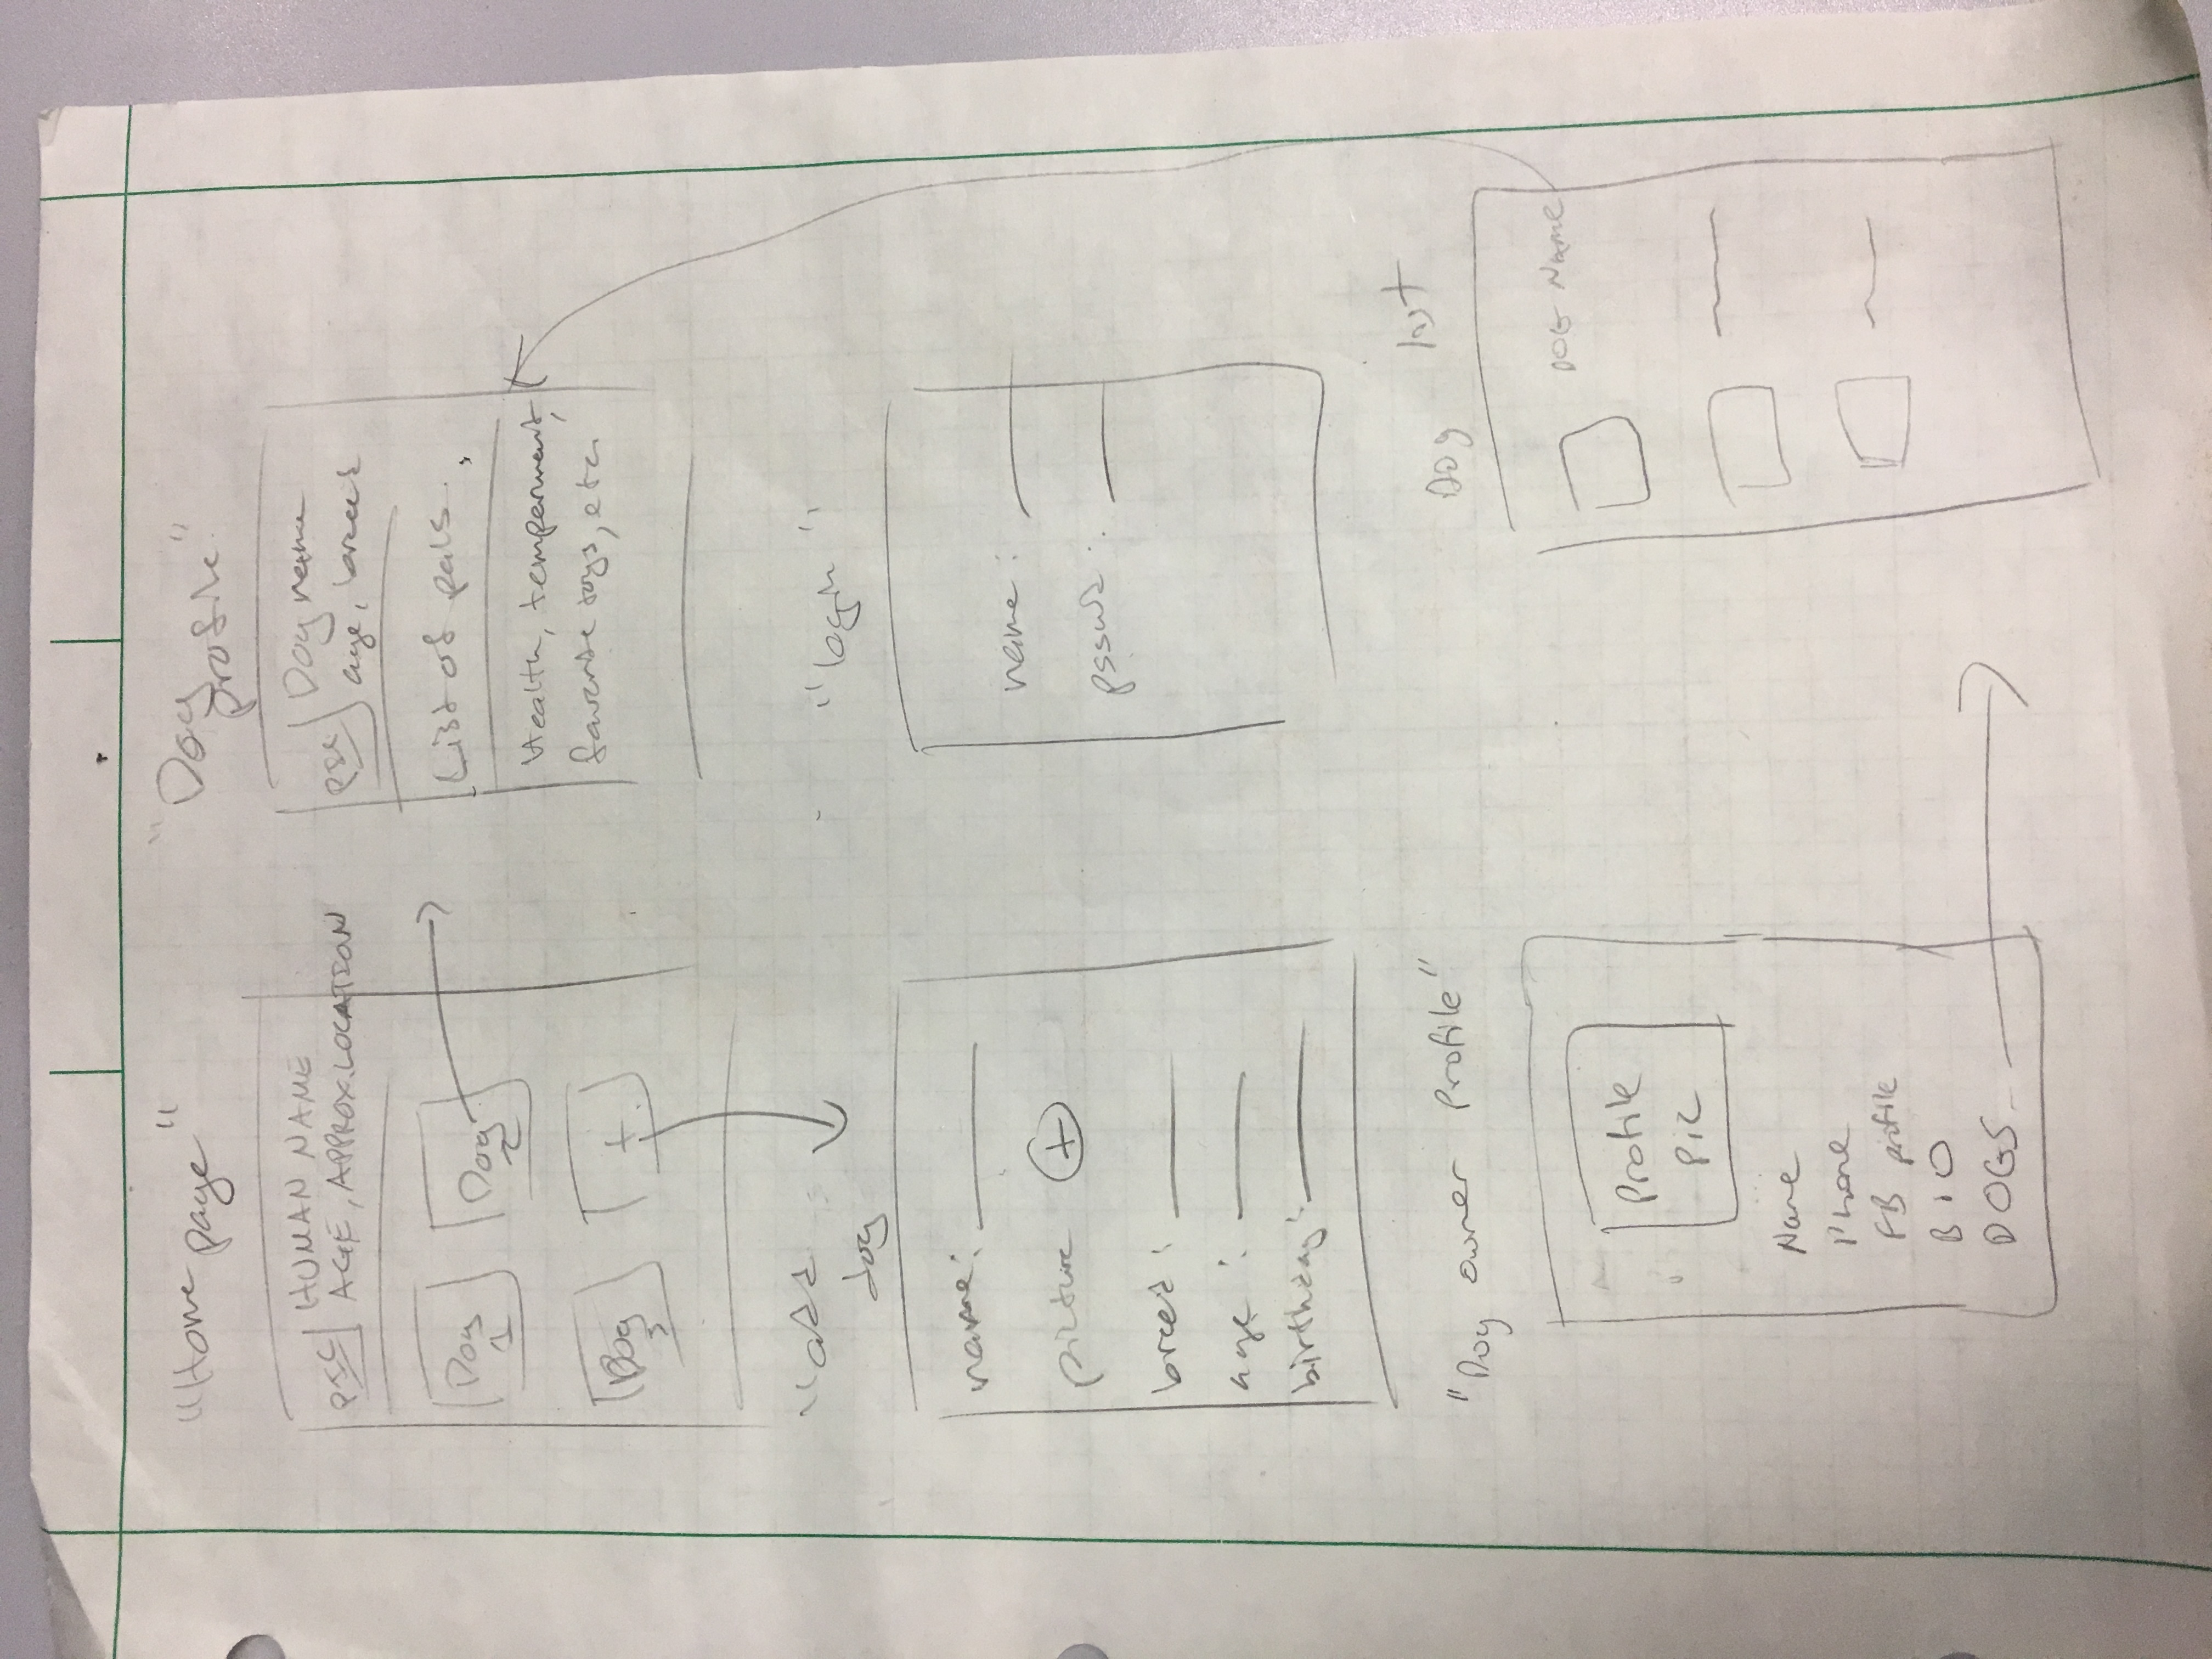 "Home page"
PIC
HUMAN NAME
AGE, APPROX. LOCATION
Dog
1
Dog
2
Dog
3
+
"Dog
profile"
PIC
Dog name
age, breed
List of pals.
Health, temperment,
favorite toys, etc.
"add
dog
name:
picture +
breed:
age :
birthday:
"login"
name :
psswd :
"Dog owner Profile"
Profile
pic
Name
Phone
FB profile
BIO
DOGS
Dog list
DOG NAME